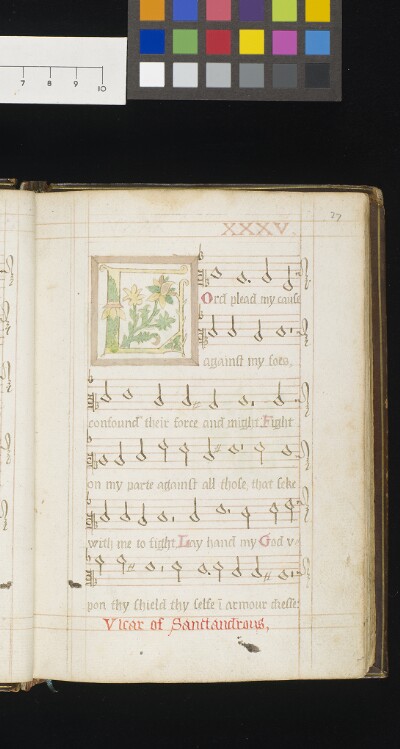 7 8 9 10
27
XXXV.
LOrd plead my cause
against my foes,
confound their force and might. Fight
on my parte against all those, that seke
with me to fight. Lay hand my God v-
pon thy shield thy selfe ī armour dresse:
Vicar of Sanctandrous,